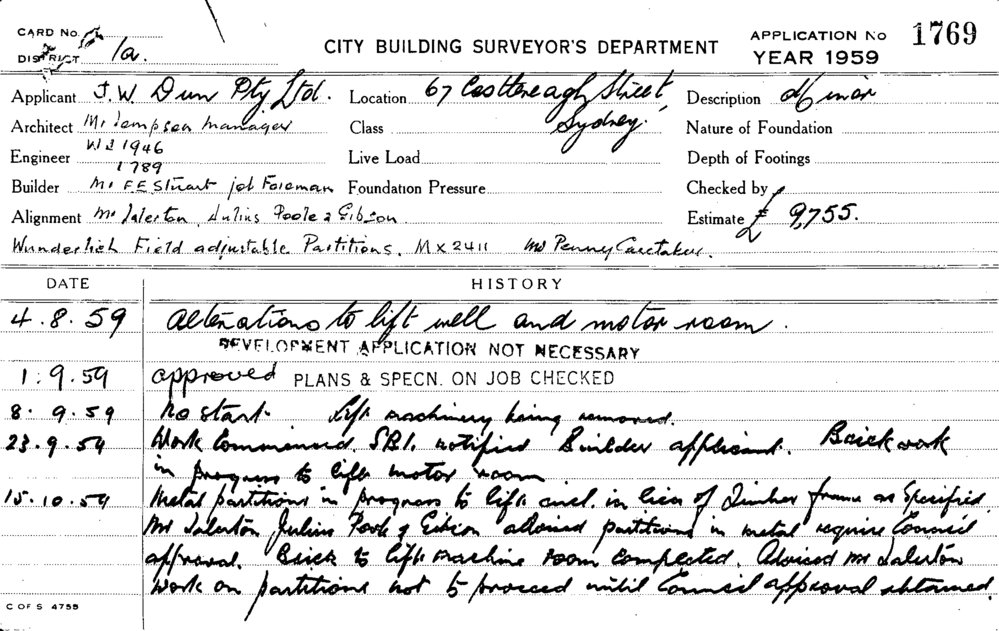 CARD No.
DISTRICT 1a.
CITY BUILDING SURVEYOR'S DEPARTMENT
APPLICATION No 1769
YEAR 1959
Applicant J. W. Dunn Pty Ltd. Location 67 Castlereagh Street, Sydney. Description Minor
Architect Mr Jempson manager Class Nature of Foundation
Engineer WJ 1946 Live Load Depth of Footings
1789
Builder Mr F.E Stuart job Foreman Foundation Pressure Checked by
Alignment Mr Salerton, Julius Poole & Gibson Estimate £ 9,755.
Wunderlich Field adjustable Partitions. MX2411 Mr Penny Caretaker.
DATE HISTORY
4.8.59 Alterations to lift well and motor room.
DEVELOPMENT APPLICATION NOT NECESSARY
1.9.59 approved PLANS & SPECN. ON JOB CHECKED
8.9.59 No start. Lift machinery being removed.
23.9.59 Work Commenced. SBI. notified Builder applicant. Brickwork
in progress to lift motor room
15.10.59 Metal partitions in progress to lift encl. in lieu of Timber frame as Specified.
Mr Salerton Julius Poole & Gibson advised partitions in metal require Council
approval. Brick to lift machine room completed. Advised Mr Salerton
work on partitions not to proceed until Council approval obtained.
C OF S 4755